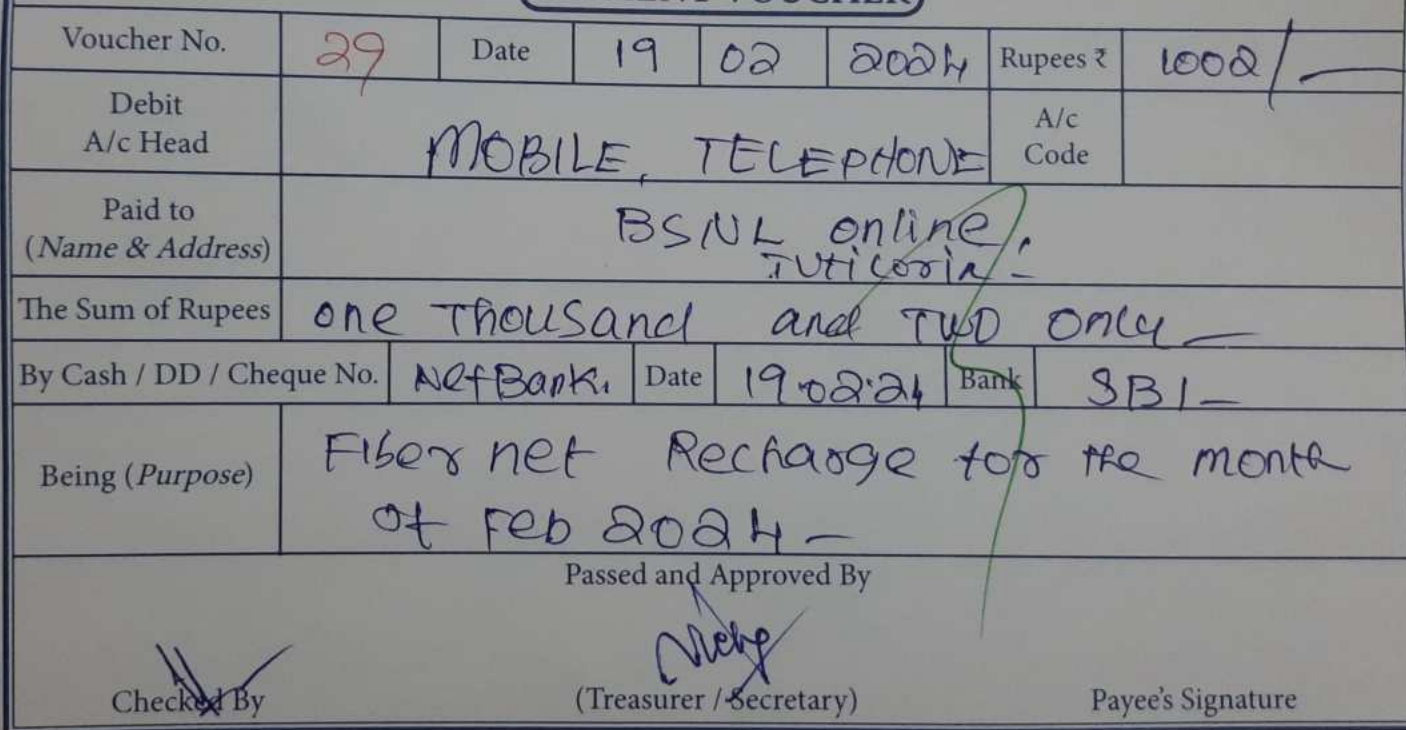 Voucher No. 29 Date 19 02 2024 Rupees ₹ 1002/-
Debit
A/c Head
MOBILE, TELEPHONE
A/c
Code
Paid to
(Name & Address)
BSNL online,
Tuticorin-
The Sum of Rupees one Thousand and TWO only
By Cash / DD / Cheque No. Net Bank. Date 19.02.24 Bank SBI-
Being (Purpose)
Fiber net Recharge for the month
of Feb 2024-
Passed and Approved By
Checked By (Treasurer / Secretary) Payee's Signature